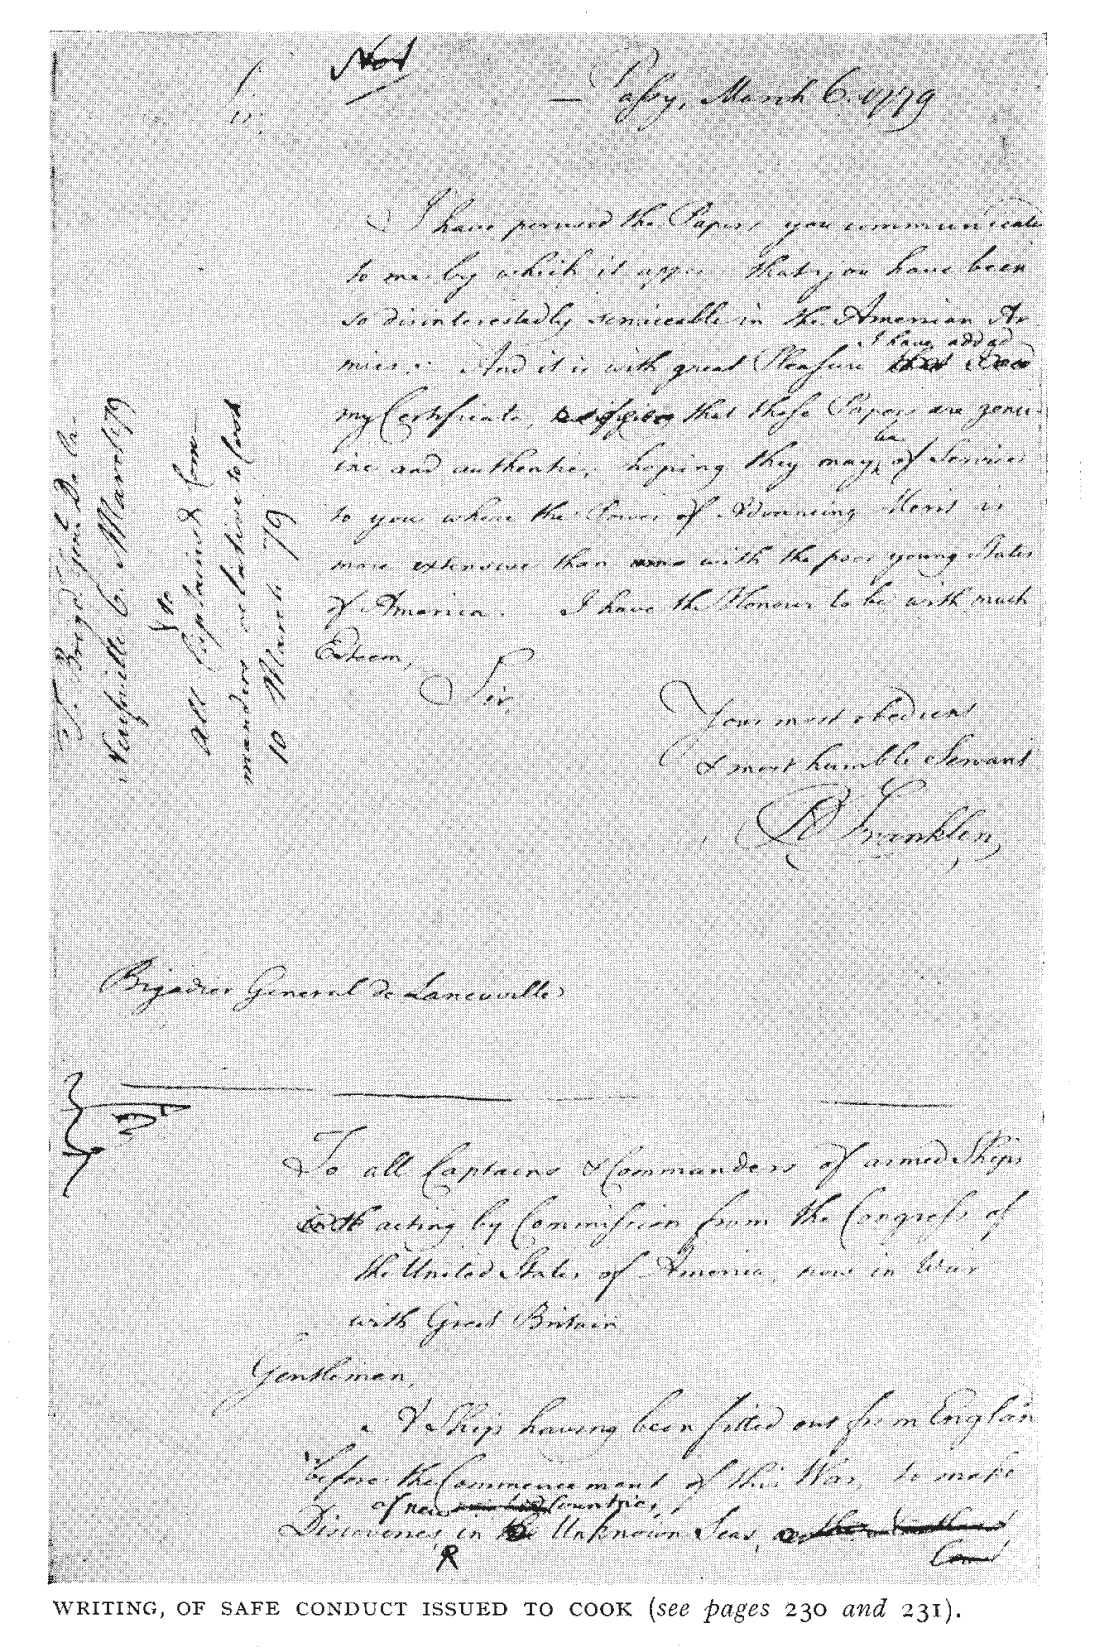 Not
Passy, March 6. 1779
Sir.
I have perused the Papers you communicate
to me by which it appe that you have been
so disinterestedly serviceable in the American Ar
mies. And it is with great Pleasure
I have added
my Certificate, that those Papers are genu-
ine and authentic, hoping they may of Service
be
to you where the Power of Advancing Merit is
more extensive than with the poor young States
of America. I have the Honour to be with much
Esteem,
Sir,
Your most obedient
& most humble Servant
B Franklin
Brigadier General de Laneuville
Brigd. Genl. De La-
Neuville 6. March 79
to
All Captains & Com-
manders relative to Cook
10 March 79
To all Captains & Commanders of armed Ships
acting by Commission from the Congress of
the United States of America, now in War
with Great Britain
Gentlemen,
A Ship having been fitted out from England
before the Commencement of this War, to make
of new Countries,
Discoveries in Unknown Seas,
WRITING, OF SAFE CONDUCT ISSUED TO COOK (see pages 230 and 231).